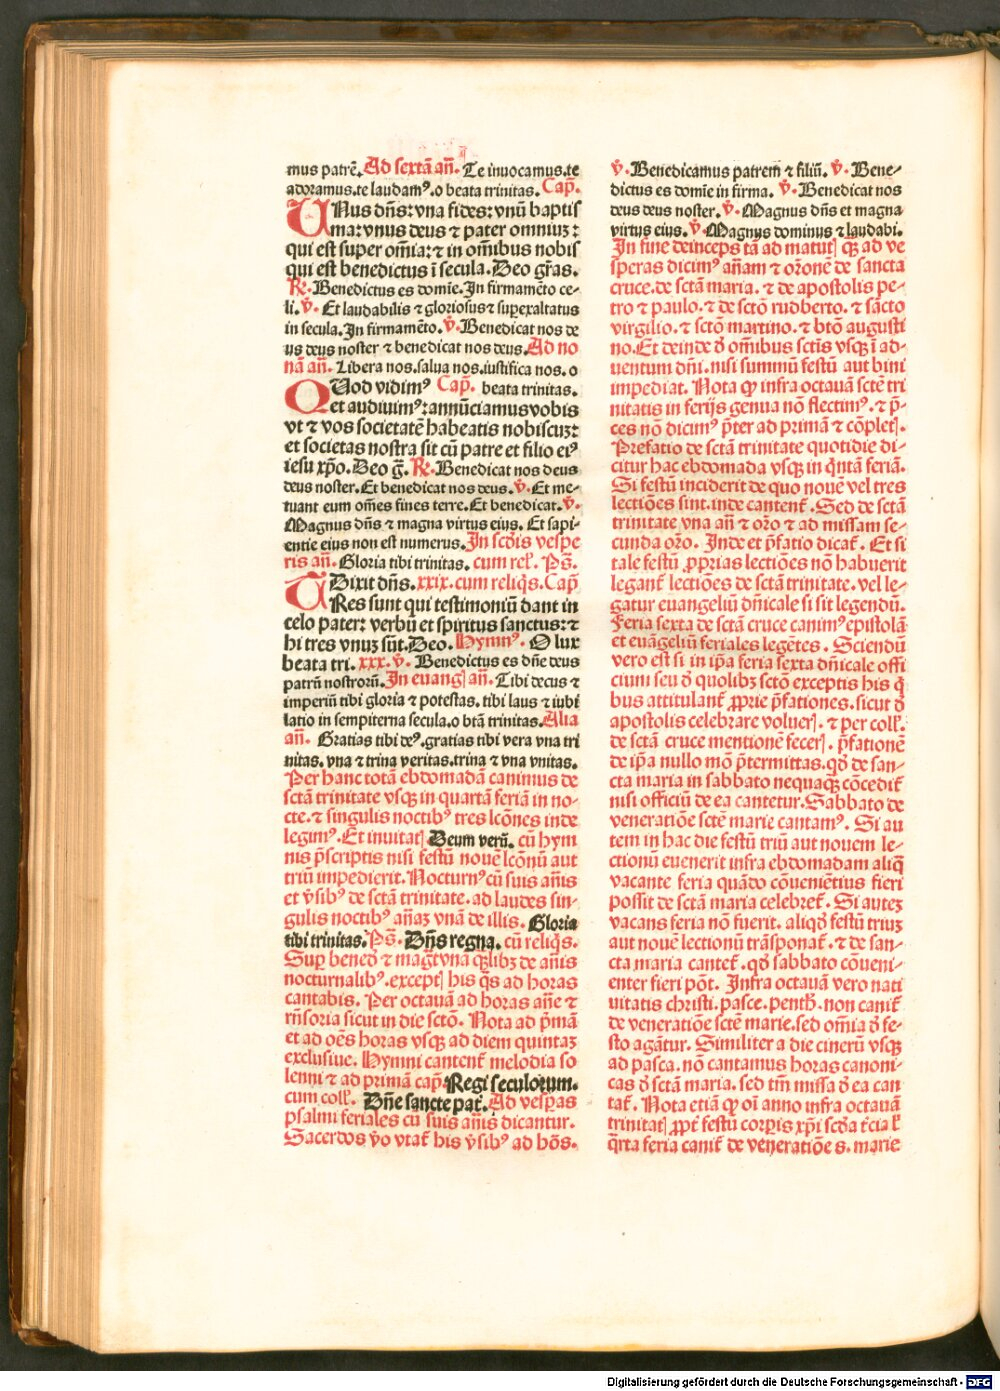 mus patrē. Ad sextā añ. Te inuocamus.te
adoramus.te laudamꝰ.o beata trinitas. Cap̄.
UNus dñs: vna fides: vnū baptis
ma: vnus deus ⁊ pater omniuꝫ:
qui est super om̄ia: ⁊ in om̄ibus nobis
qui est benedictus ī secula. Deo gr̄as.
℟. Benedictus es domīe. In firmamēto ce-
li. ℣. Et laudabilis ⁊ gloriosus ⁊ suꝑexaltatus
in secula. In firmamēto. ℣. Benedicat nos de
us deus noster ⁊ benedicat nos deus. Ad no
nā añ. Libera nos.salua nos.iustifica nos. o
QUod vidimꝰ Cap̄. beata trinitas.
et audiuimꝰ: annūciamus vobis
vt ⁊ vos societatē habeatis nobiscuꝫ:
et societas nostra sit cū patre et filio eiꝰ
iesu xp̄o. Deo g̃. ℟. Benedicat nos deus
deus noster. Et benedicat nos deus. ℣. Et me-
tuant eum om̄es fines terre. Et benedicat. ℣.
Magnus dñs ⁊ magna virtus eius. Et sapi-
entie eius non est numerus. In scd̄is vespe
ris añ. Gloria tibi trinitas. cum rel̄. Ps̄.
Dixit dñs. xxix. cum reliq̄s. Cap̄
TRes sunt qui testimoniū dant in
celo pater: verbū et spiritus sanctus: ⁊
hi tres vnuꝫ sūt. Deo. Hymnꝰ. O lux
beata tri. xxx. ℣. Benedictus es dn̄e deus
patrū nostrorū. In euanḡ añ. Tibi decus ⁊
imperiū tibi gloria ⁊ potestas. tibi laus ⁊ iubi
latio in sempiterna secula.o btā trinitas. Alia
añ. Gratias tibi deꝰ.gratias tibi vera vna tri
nitas. vna ⁊ trina veritas.trina ⁊ vna vnitas.
Per hanc totā ebdomadā canimus de
sctā trinitate vsqꝫ in quartā feriā in no-
cte. ⁊ singulis noctibꝰ tres lcōnes inde
legimꝰ. Et inuitat̄ Deum verū. cū hym
nis p̄scriptis nisi festū nouē lcōnū aut
triū impedierit. Nocturnꝰ cū suis añis
et v̄sibꝰ de sctā trinitate. ad laudes sin-
gulis noctibꝰ añaꝫ vnā de illis. Gloria
tibi trinitas. Ps̄. Dñs regna. cū reliq̄s.
Suꝑ bened̄ ⁊ mag̃t vna q̄libꝫ de añis
nocturnalibꝰ.except̄ his q̄s ad horas
cantabis. Per octauā ad horas añe ⁊
rñsoria sicut in die sctō. Nota ad p̄mā
et ad oēs horas vsqꝫ ad diem quintaꝫ
exclusiue. Hymni cantent̄ melodia so
lenni ⁊ ad primā cap̄ Regi seculorum.
cum coll̄. Dn̄e sancte pat̄. Ad vesꝑas
psalmi feriales cū suis añis dicantur.
Sacerdos v̄o vtat̄ his v̄sibꝰ ad hōs.
℣. Benedicamus patrem ⁊ filiū. ℣. Bene-
dictus es domīe in firma. ℣. Benedicat nos
deus deus noster. ℣. Magnus dñs et magna
virtus eius. ℣. Magnus dominus ⁊ laudabi.
In fine deinceps tā ad matut̄ qꝫ ad ve
speras dicimꝰ añam ⁊ or̄onē de sancta
cruce.de sctā maria. ⁊ de apostolis pe-
tro ⁊ paulo. ⁊ de sctō rudberto. ⁊ sācto
virgilio. ⁊ sctō martino. ⁊ btō augusti
no. Et deinde d̄ om̄ibus sctīs vsqꝫ ī ad-
uentum dñi. nisi summū festū aut bini
impediat. Nota ꝙ infra octauā sctē tri
nitatis in ferijs genua nō flectimꝰ. ⁊ p̄-
ces nō dicimꝰ p̄ter ad primā ⁊ cōplet̄.
Prefatio de sctā trinitate quotidie di-
citur hac ebdomada vsqꝫ in q̄ntā feriā.
Si festū inciderit de quo nouē vel tres
lectiōes sint.inde cantent̄. Sed de sctā
trinitate vna añ ⁊ or̄o ⁊ ad missam se-
cunda or̄o. Inde et p̄fatio dicat̄. Et si
tale festū ꝓprias lectiōes nō habuerit
legant̄ lectiōes de sctā trinitate. vel le-
gatur euangeliū dñicale si sit legendū.
Feria sexta de sctā cruce canimꝰ epistolā
et euāgeliū feriales legētes. Sciendū
vero est si in ip̄a feria sexta dñicale offi
cium seu d̄ quolibꝫ sctō exceptis his q̄
bus attitulant̄ ꝓprie p̄fationes. sicut d̄
apostolis celebrare voluer̄. ⁊ per coll̄.
de sctā cruce mentionē fecer̄. p̄fationē
de ip̄a nullo mō p̄termittas. qd̄ de san-
cta maria in sabbato nequaqꝫ cōcedit̄
nisi officiū de ea cantetur. Sabbato de
veneratiōe sctē marie cantamꝰ. Si au
tem in hac die festū triū aut nouem le-
ctionū euenerit infra ebdomadam aliq̄
vacante feria quādo cōuenientius fieri
possit de sctā maria celebret̄. Si auteꝫ
vacans feria nō fuerit. aliqd̄ festū triuꝫ
aut nouē lectionū trāsponat̄. ⁊ de san-
cta maria cantet̄. qd̄ sabbato cōueni-
enter fieri pōt. Infra octauā vero nati
uitatis christi. pasce. penth̄. non canit̄
de veneratiōe sctē marie.sed om̄ia d̄ fe-
sto agātur. Similiter a die cinerū vsqꝫ
ad pasca. nō cantamus horas canoni-
cas d̄ sctā maria. sed tm̄ missa d̄ ea can
tat̄. Nota etiā ꝙ oī anno infra octauā
trinitat̄ ꝓpt̄ festū corꝑis xp̄i scd̄a t̄cia l̄
q̄rta feria canit̄ de veneratiōe s. marie
Digitalisierung gefördert durch die Deutsche Forschungsgemeinschaft - DFG